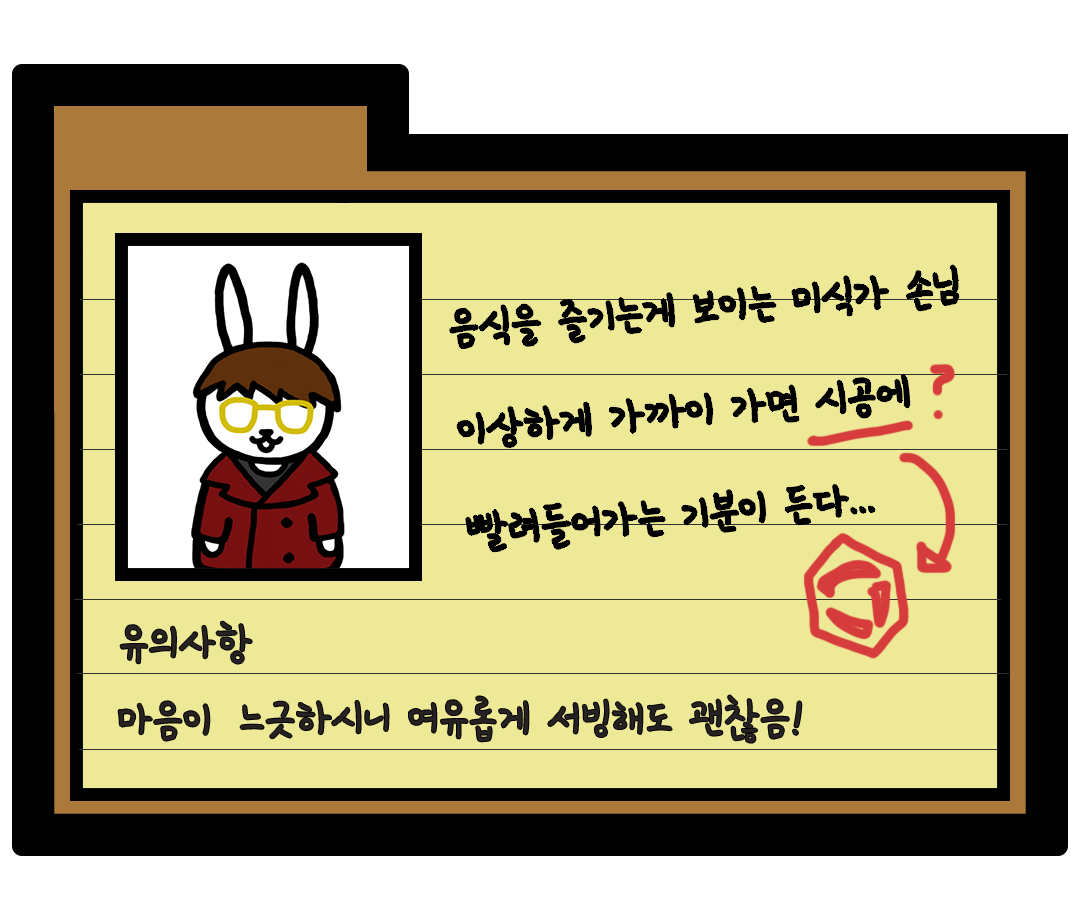 음식을 즐기는게 보이는 미식가 손님
이상하게 가까이 가면 시공에 ?
빨려들어가는 기분이 든다...
유의사항
마음이 느긋하시니 여유롭게 서빙해도 괜찮음!